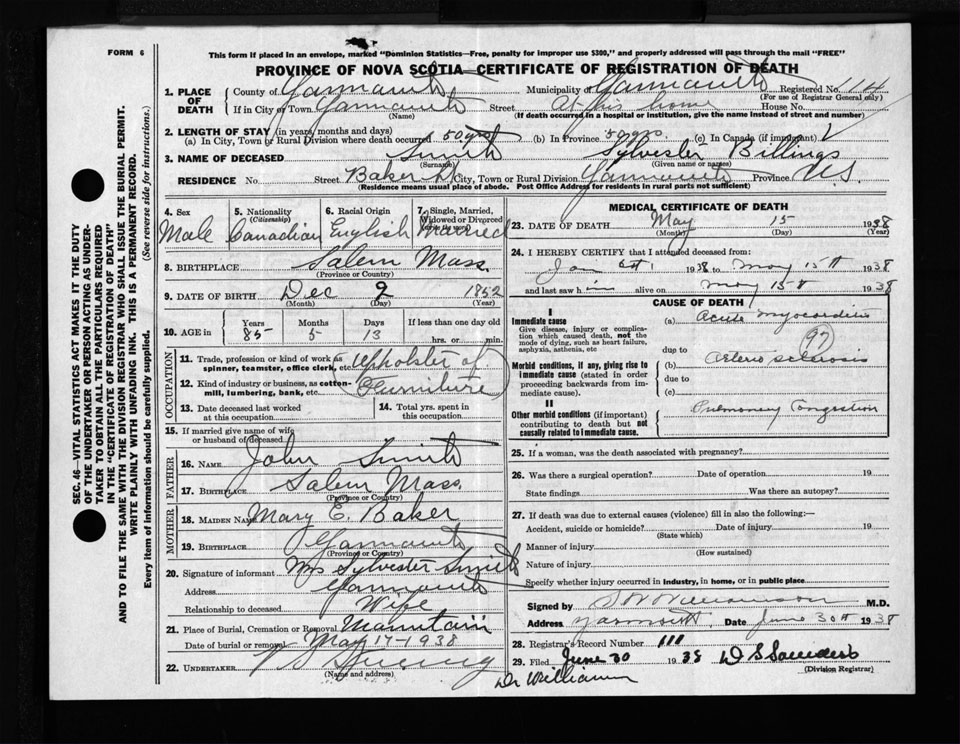 FORM 6
This form if placed in an envelope, marked "Dominion Statistics—Free, penalty for improper use $300," and properly addressed will pass through the mail "FREE"
PROVINCE OF NOVA SCOTIA—CERTIFICATE OF REGISTRATION OF DEATH
1. PLACE OF DEATH
County of Yarmouth Municipality of Yarmouth Registered No. 114
(For use of Registrar General only)
If in City or Town Yarmouth Street At his home House No.
(Name) (If death occurred in a hospital or institution, give the name instead of street and number)
2. LENGTH OF STAY (in years, months and days)
(a) In City, Town or Rural Division where death occurred 50 yrs (b) In Province 50 yrs. (c) In Canada (if immigrant)
3. NAME OF DECEASED Smith Sylvester Billings
(Surname) (Given name or names)
RESIDENCE No. Street Baker St City, Town or Rural Division Yarmouth Province N.S.
(Residence means usual place of abode. Post Office Address for residents in rural parts not sufficient)
4. Sex Male
5. Nationality (Citizenship) Canadian
6. Racial Origin English
7. Single, Married, Widowed or Divorced (write the word) Married
8. BIRTHPLACE Salem Mass.
(Province or Country)
9. DATE OF BIRTH Dec 9 1852
(Month) (Day) (Year)
10. AGE in Years Months Days If less than one day old
85 5 13 hrs. or min.
OCCUPATION
11. Trade, profession or kind of work as spinner, teamster, office clerk, etc. Upholster of
12. Kind of industry or business, as cotton-mill, lumbering, bank, etc. Furniture
13. Date deceased last worked at this occupation
14. Total yrs. spent in this occupation
15. If married give name of wife or husband of deceased
FATHER
16. NAME John Smith
17. BIRTHPLACE Salem Mass.
(Province or Country)
MOTHER
18. MAIDEN NAME Mary E. Baker
19. BIRTHPLACE Yarmouth
(Province or Country)
20. Signature of informant Mrs Sylvester Smith
Address Yarmouth
Relationship to deceased Wife
21. Place of Burial, Cremation or Removal Mountain
Date of burial or removal May 17-1938
22. UNDERTAKER
(Name and address)
MEDICAL CERTIFICATE OF DEATH
23. DATE OF DEATH May 15 1938
(Month) (Day) (Year)
24. I HEREBY CERTIFY that I attended deceased from:
Jan 1938 to May 15th 1938
and last saw him alive on May 15th 1938
CAUSE OF DEATH
I
Immediate cause
Give disease, injury or complication which caused death, not the mode of dying, such as heart failure, asphyxia, asthenia, etc
(a) Acute Myocarditis
due to 97
Morbid conditions, if any, giving rise to immediate cause (stated in order proceeding backwards from immediate cause).
(b) Arterio sclerosis
due to
(c)
II
Other morbid conditions (if important) contributing to death but not causally related to immediate cause.
Pulmonary Congestion
25. If a woman, was the death associated with pregnancy?
26. Was there a surgical operation? Date of operation 19
State findings Was there an autopsy?
27. If death was due to external causes (violence) fill in also the following:—
Accident, suicide or homicide? Date of injury 19
(State which)
Manner of injury
(How sustained)
Nature of injury
Specify whether injury occurred in industry, in home, or in public place
Signed by Williamson M.D.
Address Yarmouth Date June 30th 1938
28. Registrar's Record Number 111
29. Filed June 30 1938 D S Saunders
(Division Registrar)
Dr Williamson
SEC. 46—VITAL STATISTICS ACT MAKES IT THE DUTY
OF THE UNDERTAKER OR PERSON ACTING AS UNDER-
TAKER TO OBTAIN ALL THE PARTICULARS REQUIRED
IN THE "CERTIFICATE OF REGISTRATION OF DEATH"
AND TO FILE THE SAME WITH THE DIVISION REGISTRAR WHO SHALL ISSUE THE BURIAL PERMIT.
WRITE PLAINLY WITH UNFADING INK. THIS IS A PERMANENT RECORD.
Every item of information should be carefully supplied. (See reverse side for instructions.)